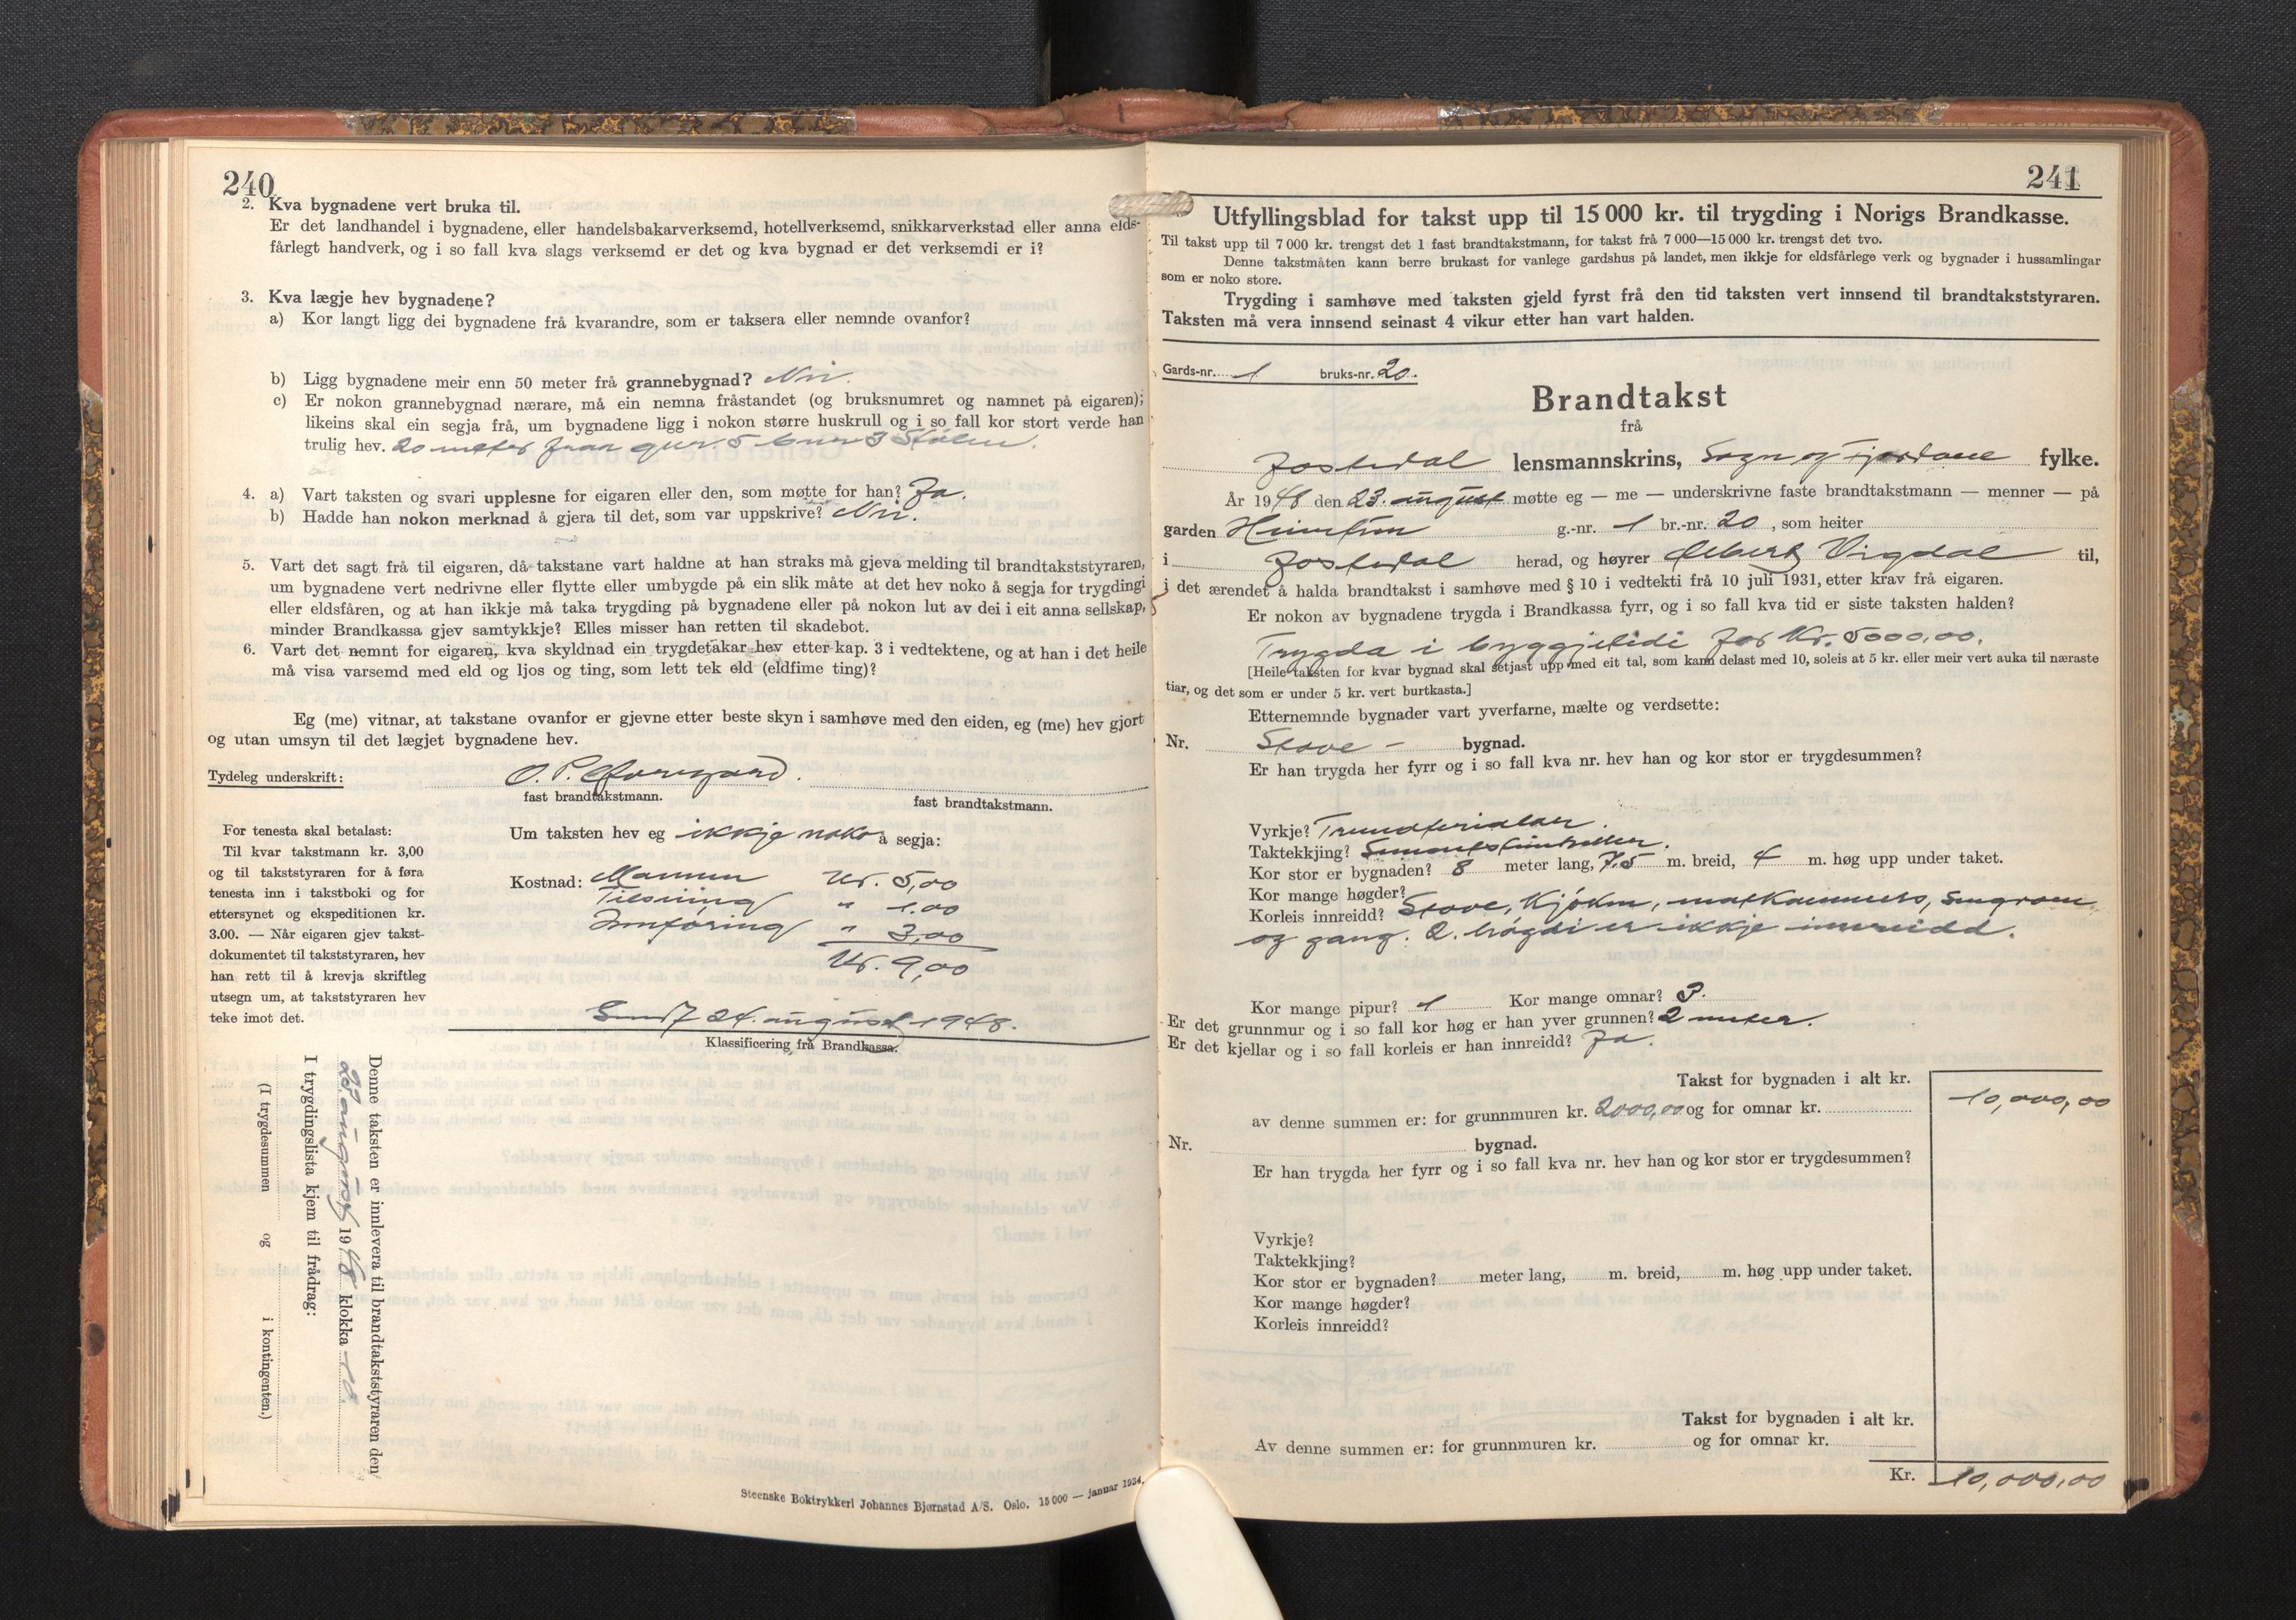 240
2. Kva bygnadene vert bruka til.
Er det landhandel i bygnadene, eller handelsbakarverksemd, hotellverksemd, snikkarverkstad eller anna elds-
fårlegt handverk, og i so fall kva slags verksemd er det og kva bygnad er det verksemdi er i?
3. Kva lægje hev bygnadene?
a) Kor langt ligg dei bygnadene frå kvarandre, som er taksera eller nemnde ovanfor?
b) Ligg bygnadene meir enn 50 meter frå grannebygnad? Nei.
c) Er nokon grannebygnad nærare, må ein nemna fråstandet (og bruksnumret og namnet på eigaren);
likeins skal ein segja frå, um bygnadene ligg i nokon større huskrull og i so fall kor stort verde han
trulig hev. 20 meter fraa gnr. 5 bnr. 3 Stølen.
4. a) Vart taksten og svari upplesne for eigaren eller den, som møtte for han? Ja.
b) Hadde han nokon merknad å gjera til det, som var uppskrive? Nei.
5. Vart det sagt frå til eigaren, då takstane vart haldne at han straks må gjeva melding til brandtakststyraren,
um bygnadene vert nedrivne eller flytte eller umbygde på ein slik måte at det hev noko å segja for trygdingi
eller eldsfåren, og at han ikkje må taka trygding på bygnadene eller på nokon lut av dei i eit anna sellskap,
minder Brandkassa gjev samtykkje? Elles misser han retten til skadebot.
6. Vart det nemnt for eigaren, kva skyldnad ein trygdetakar hev etter kap. 3 i vedtektene, og at han i det heile
må visa varsemd med eld og ljos og ting, som lett tek eld (eldfime ting)?
Eg (me) vitnar, at takstane ovanfor er gjevne etter beste skyn i samhøve med den eiden, eg (me) hev gjort
og utan umsyn til det lægjet bygnadene hev.
Tydeleg underskrift: O. P.
fast brandtakstmann. fast brandtakstmann.
For tenesta skal betalast:
Til kvar takstmann kr. 3,00
og til takststyraren for å føra
tenesta inn i takstboki og for
ettersynet og ekspeditionen kr.
3.00. — Når eigaren gjev takst-
dokumentet til takststyraren, hev
han rett til å krevja skriftleg
utsegn um, at takststyraren hev
teke imot det.
Um taksten hev eg ikkje noko å segja:
Kostnad: Mannen Kr. 5,00
Tilsyning " 1.00
Innføring " 3,00
Kr. 9,00
24. august 1948.
Klassificering frå Brandkassa.
Denne taksten er innlevera til brandtakststyraren den
23 august 1948 klokka 10.
I trygdingslista kjem til frådrag:
(I trygdesummen og i kontingenten.)
Steenske Boktrykkeri Johannes Bjørnstad A/S. Oslo. 15 000 — januar 1934.
241
Utfyllingsblad for takst upp til 15 000 kr. til trygding i Norigs Brandkasse.
Til takst upp til 7 000 kr. trengst det 1 fast brandtakstmann, for takst frå 7 000—15 000 kr. trengst det tvo.
Denne takstmåten kann berre brukast for vanlege gardshus på landet, men ikkje for eldsfårlege verk og bygnader i hussamlingar
som er noko store.
Trygding i samhøve med taksten gjeld fyrst frå den tid taksten vert innsend til brandtakststyraren.
Taksten må vera innsend seinast 4 vikur etter han vart halden.
Gards-nr. 1 bruks-nr. 20.
Brandtakst
frå
Jostedal lensmannskrins, Sogn og Fjordane fylke.
År 1948 den 23. august møtte eg — me — underskrivne faste brandtakstmann — menner — på
garden Heimtun g.-nr. 1 br.-nr. 20, som heiter
i Jostedal herad, og høyrer Albert Vigdal til,
i det ærendet å halda brandtakst i samhøve med § 10 i vedtekti frå 10 juli 1931, etter krav frå eigaren.
Er nokon av bygnadene trygda i Brandkassa fyrr, og i so fall kva tid er siste taksten halden?
Trygda i byggjetidi for Kr. 5000,00.
[Heile taksten for kvar bygnad skal setjast upp med eit tal, som kann delast med 10, soleis at 5 kr. eller meir vert auka til næraste
tiar, og det som er under 5 kr. vert burtkasta.]
Etternemnde bygnader vart yverfarne, mælte og verdsette:
Nr. Stove- bygnad.
Er han trygda her fyrr og i so fall kva nr. hev han og kor stor er trygdesummen?
Vyrkje? Trematerialar.
Taktekkjing? Sementsteinheller.
Kor stor er bygnaden? 8 meter lang, 7,5 m. breid, 4 m. høg upp under taket.
Kor mange høgder?
Korleis innreidd? Stove, Kjøken, matkammers, Sengrom
og gang. 2. høgdi er ikkje innreidd.
Kor mange pipur? 1 Kor mange omnar? 3.
Er det grunnmur og i so fall kor høg er han yver grunnen? 2 meter.
Er det kjellar og i so fall korleis er han innreidd? Ja.
Takst for bygnaden i alt kr. 10,000,00
av denne summen er: for grunnmuren kr. 2000,00 og for omnar kr.
Nr. bygnad.
Er han trygda her fyrr og i so fall kva nr. hev han og kor stor er trygdesummen?
Vyrkje?
Taktekkjing?
Kor stor er bygnaden? meter lang, m. breid, m. høg upp under taket.
Kor mange høgder?
Korleis innreidd?
Takst for bygnaden i alt kr.
Av denne summen er: for grunnmuren kr. og for omnar kr.
Kr. 10,000,00